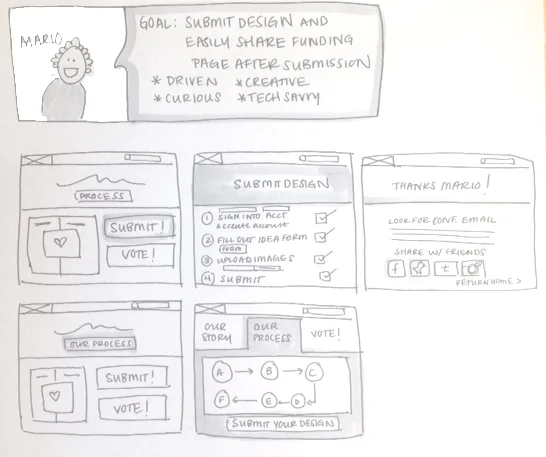 MARIO
GOAL: SUBMIT DESIGN AND
EASILY SHARE FUNDING
PAGE AFTER SUBMISSION
* DRIVEN * CREATIVE
* CURIOUS * TECH SAVVY
PROCESS
SUBMIT!
VOTE!
SUBMIT DESIGN
1 SIGN INTO ACCT
CREATE ACCOUNT
2 FILL OUT IDEA FORM
FORM
3 UPLOAD IMAGES
4 SUBMIT
THANKS MARIO!
LOOK FOR CONF. EMAIL
SHARE W/ FRIENDS
f t
RETURN HOME >
OUR PROCESS
SUBMIT!
VOTE!
OUR STORY
OUR PROCESS
VOTE!
A B C
F E D
SUBMIT YOUR DESIGN